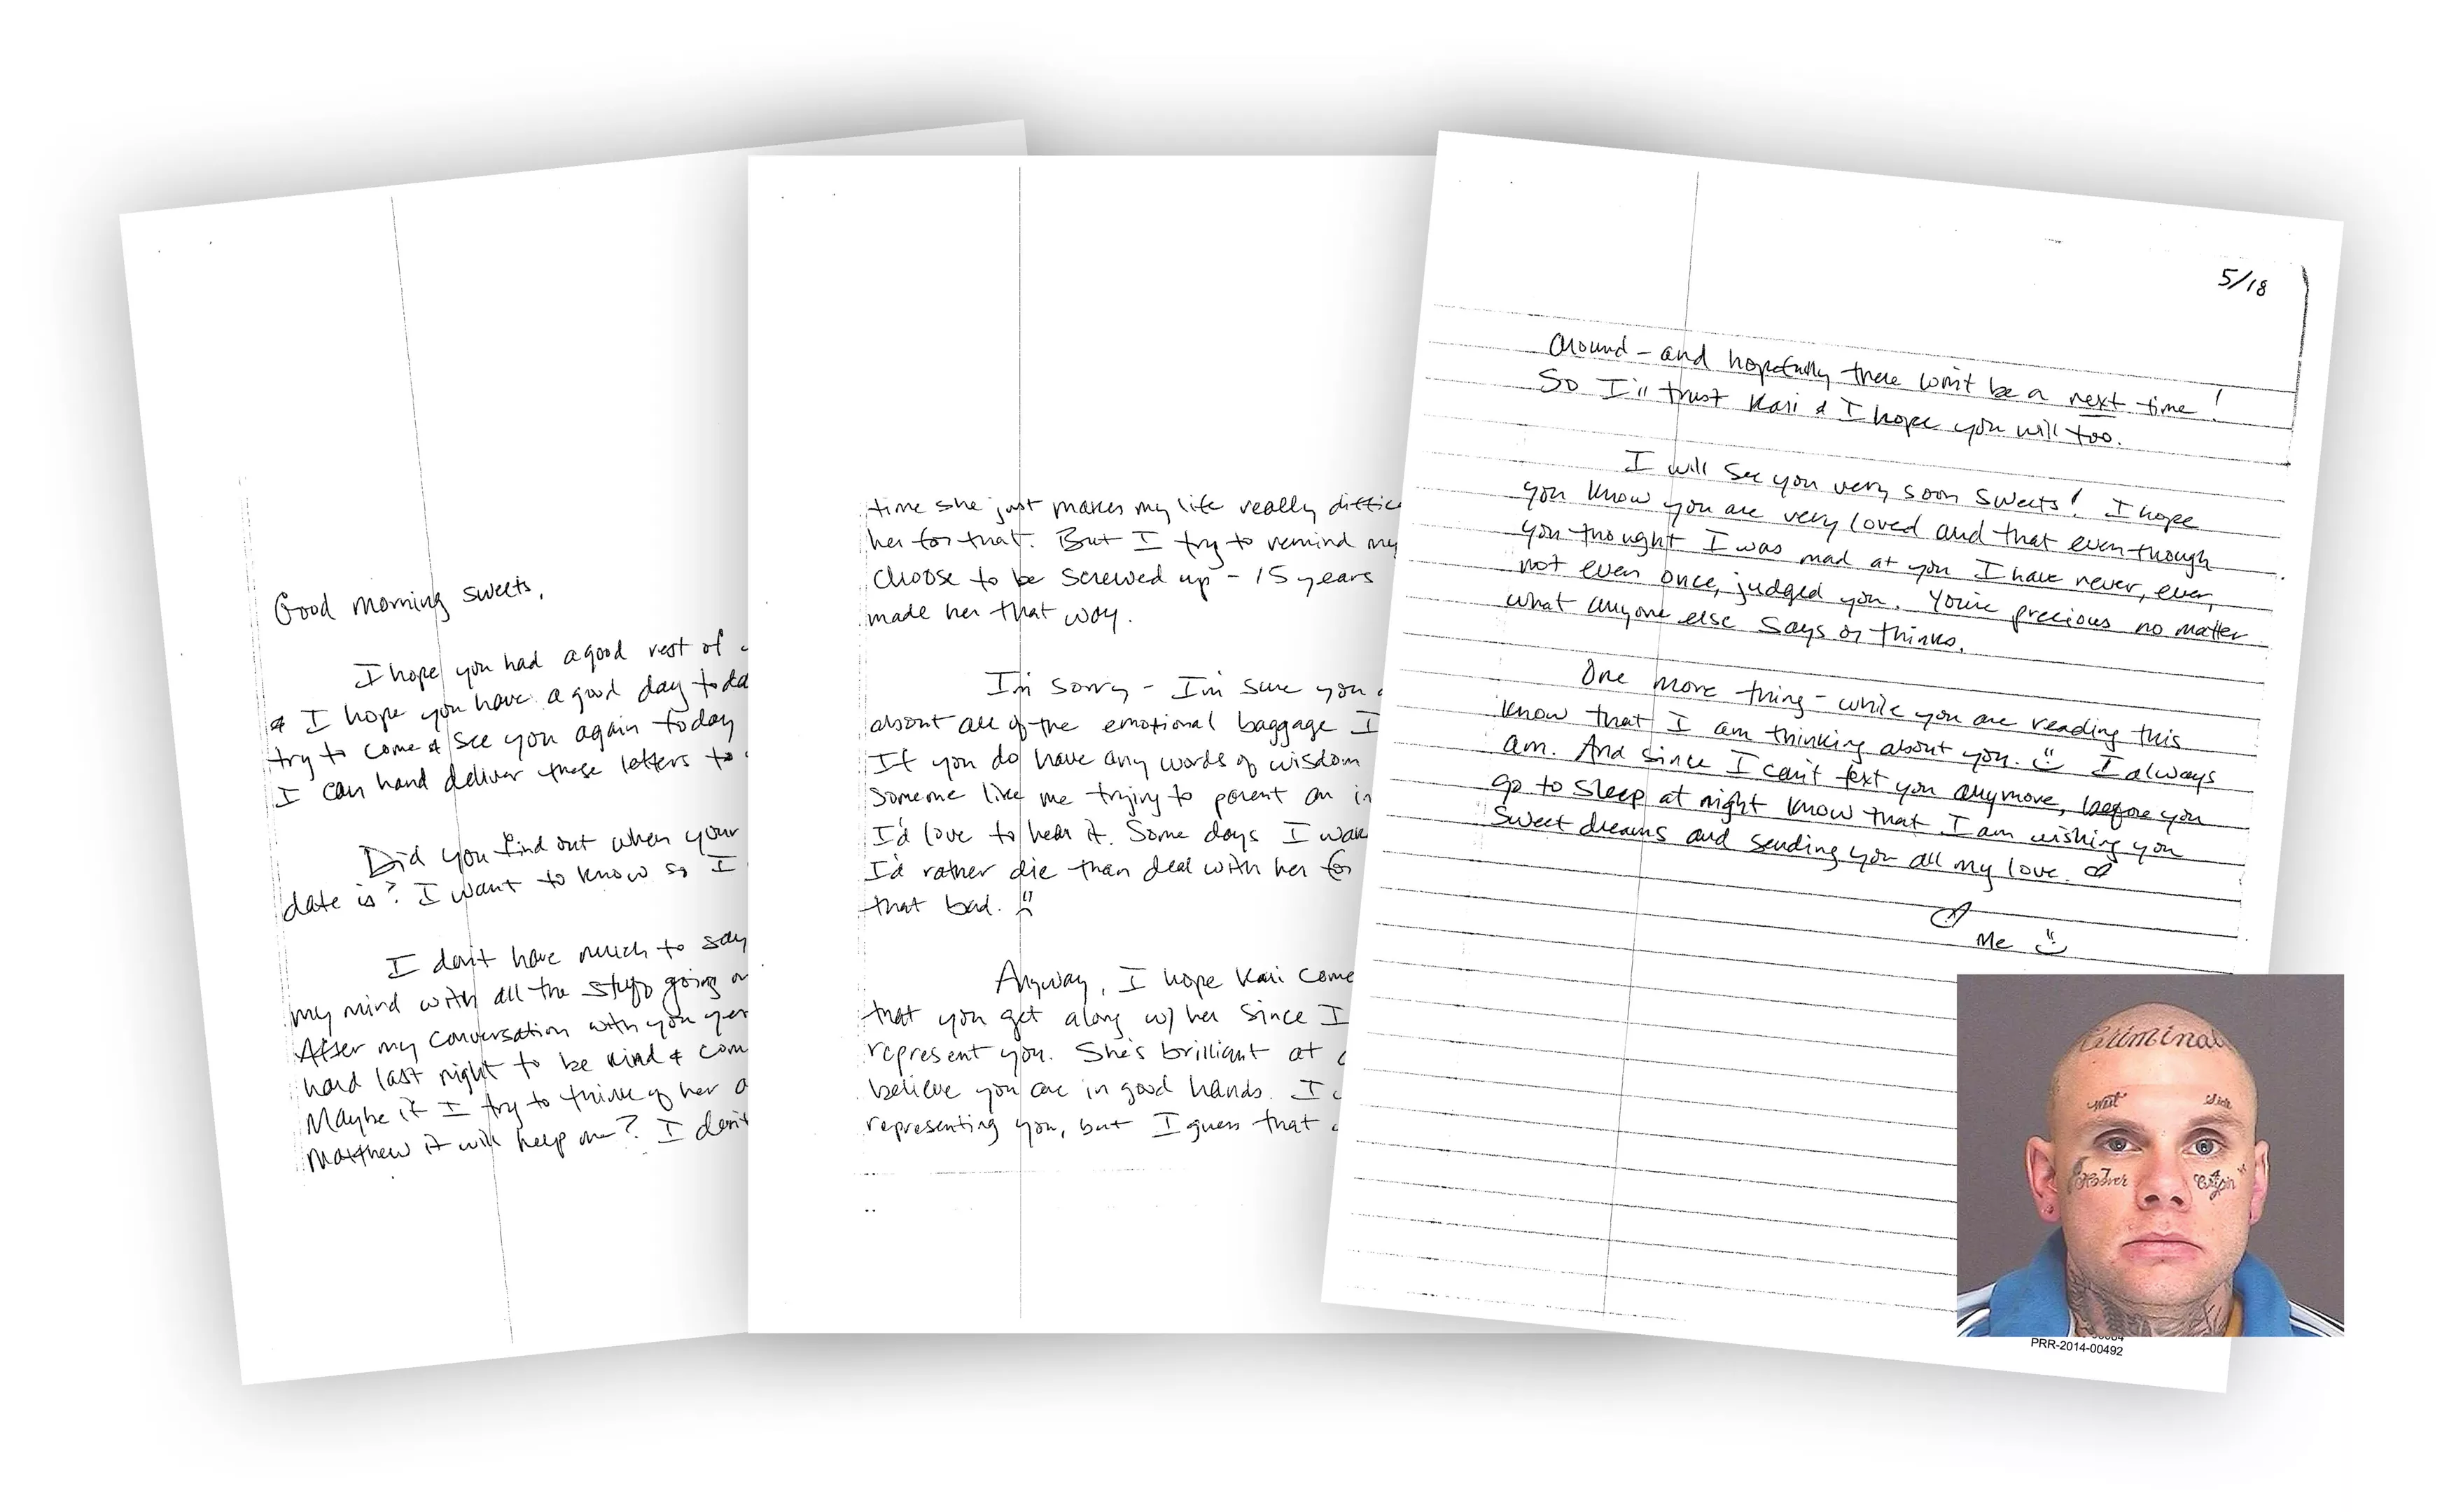 Good morning sweets,
I hope you had a good rest of
& I hope you have a good day toda
try to come & see you again today
I can hand deliver these letters to
Did you find out when your
date is? I want to know so I
I don't have much to say
my mind with all the stuff going
After my conversation with you yes
hard last night to be kind & com
Maybe if I try to think of her a
Matthew it will help me? I don't
time she just makes my life really diffic
her for that. But I try to remind my
choose to be screwed up - 15 years
made her that way.
I'm sorry - I'm sure you
about all of the emotional baggage I
If you do have any words of wisdom
someone like me trying to parent an
I'd love to hear it. Some days I wake
I'd rather die than deal with her for
that bad.
Anyway, I hope Kari come
that you get along w/ her since I
represent you. She's brilliant at
believe you are in good hands. I
representing you, but I guess that
5/18
around - and hopefully there won't be a next time!
So I'll trust Kari & I hope you will too.
I will see you very soon sweets! I hope
you know you are very loved and that even though
you thought I was mad at you I have never, ever,
not even once, judged you. You're precious no matter
what anyone else says or thinks.
One more thing - while you are reading this
know that I am thinking about you. I always
am. And since I can't text you anymore, before you
go to sleep at night know that I am wishing you
sweet dreams and sending you all my love.
Me
Criminal
West Side
PRR-2014-00492